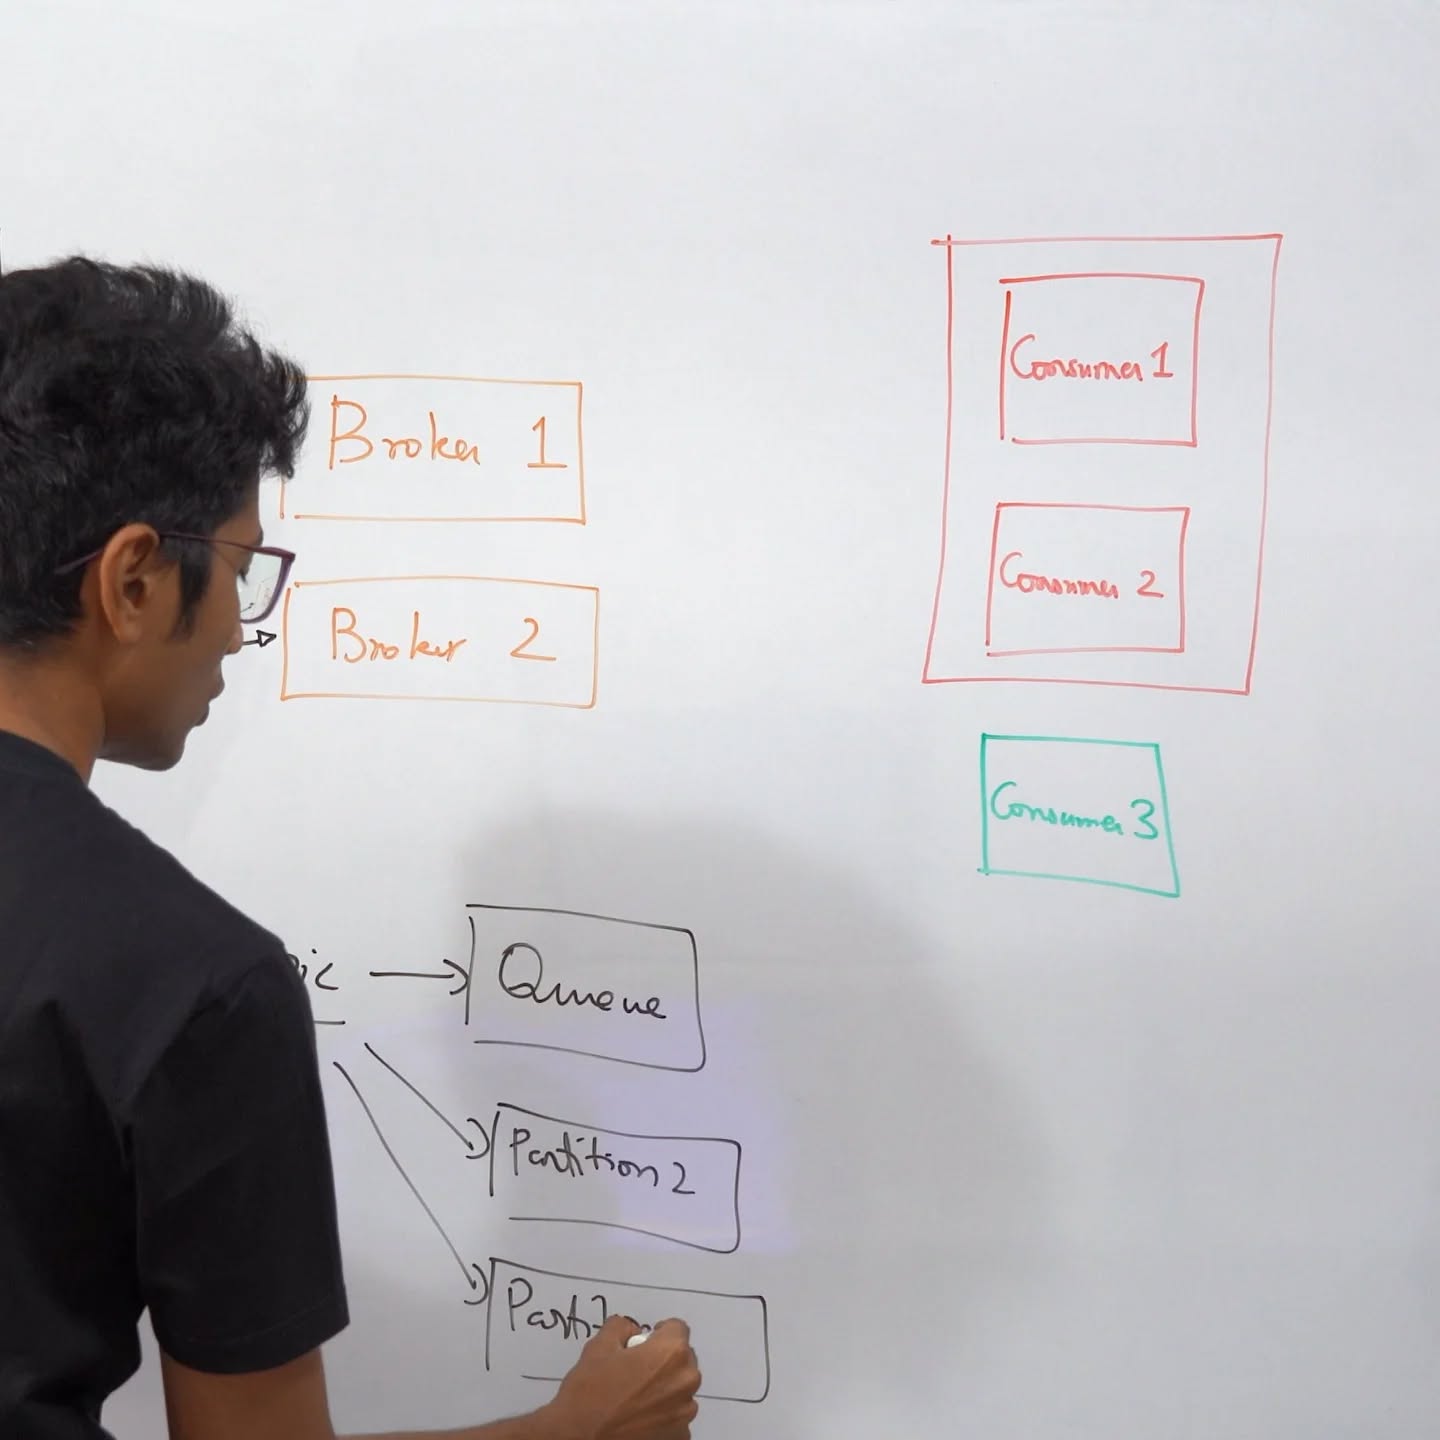 Broker 1
Broker 2
Consumer 1
Consumer 2
Consumer 3
Queue
Partition 2